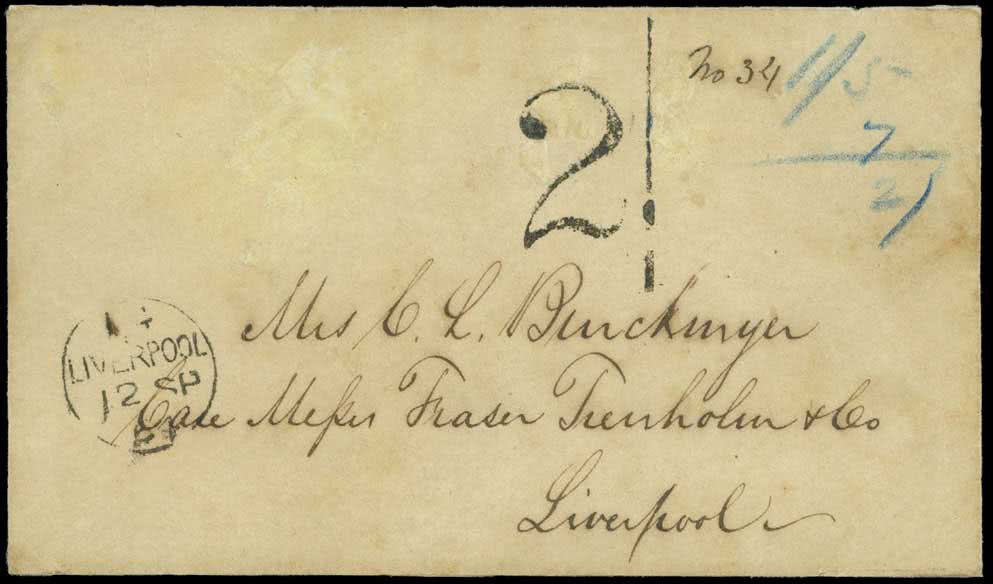 No 34
1/5
7
2
2
Mrs C. L. Burckmyer
LIVERPOOL
12 SP
Care Messrs Fraser Trenholm & Co
Liverpool